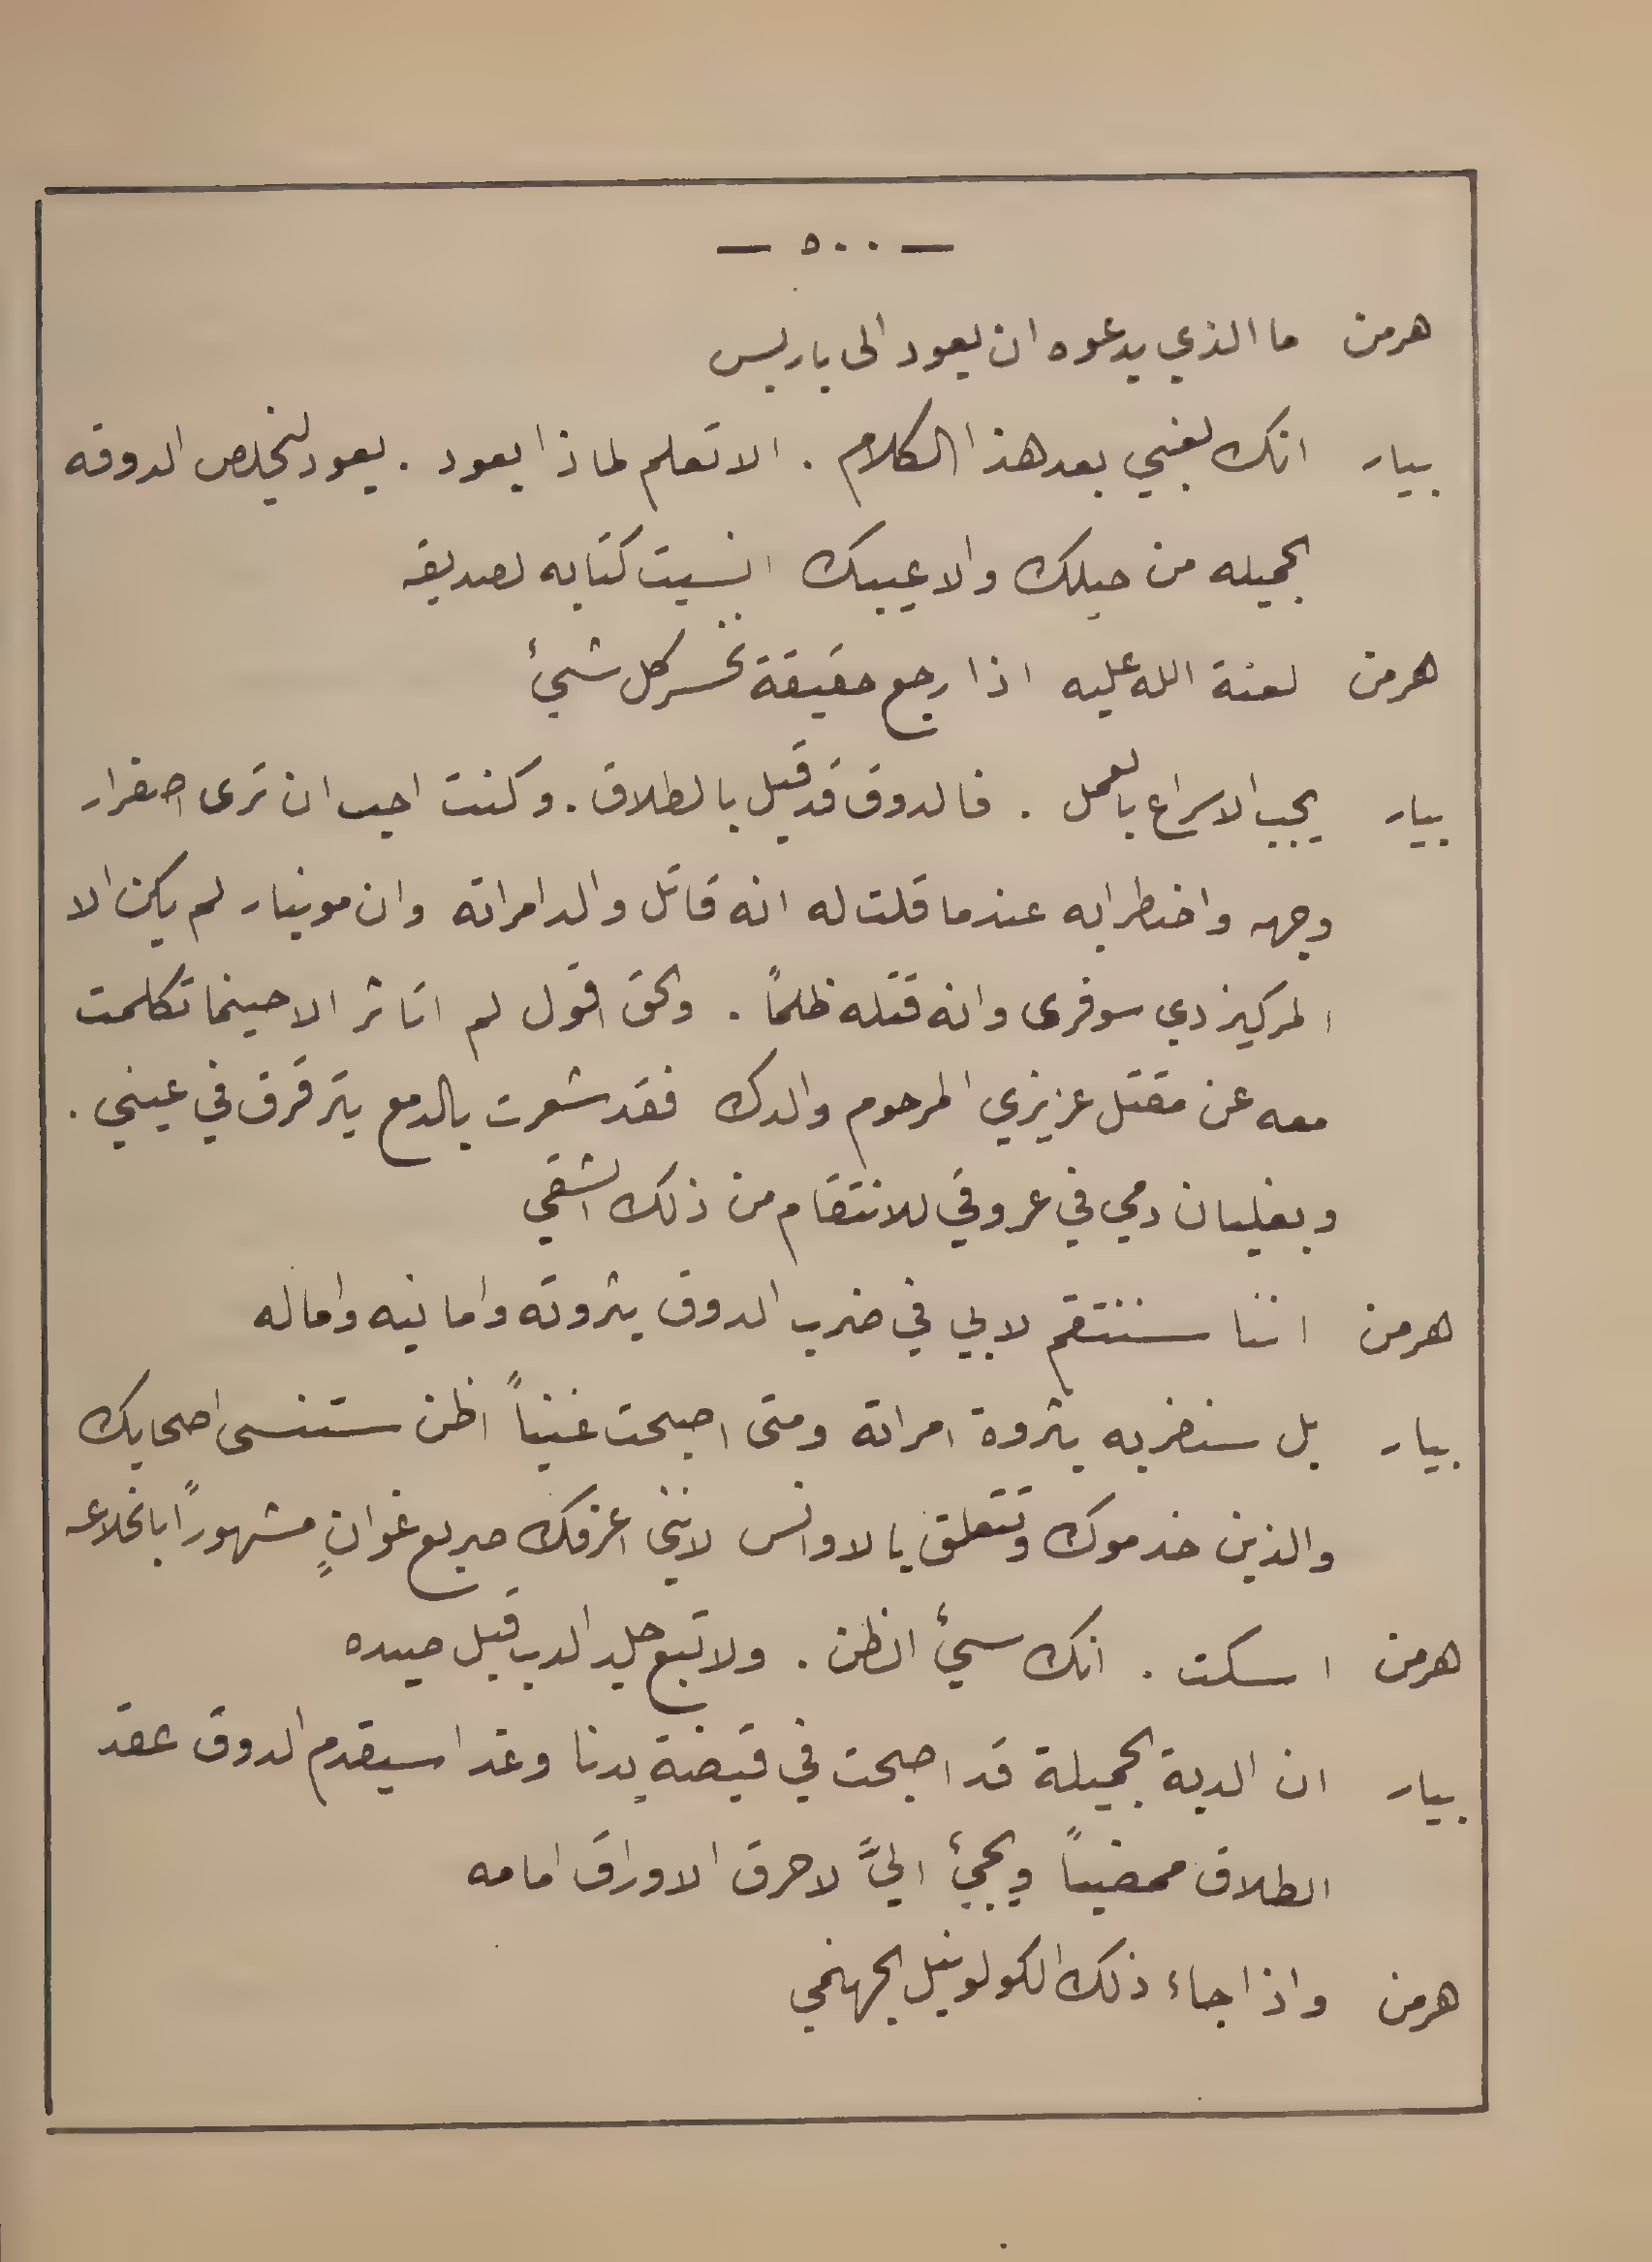 — ٥٠٠ —
هرمن ما الذي يدعوه ان يعود الى باريس
بيار انك لغبي بعد هذا الكلام . الا تعلم لماذا يعود . يعود ليخلص الدوقه
الجميله من حيلك والاعيبك انسيت كتابه لصديقه
هرمن لعنة الله عليه اذا رجع حقيقة نخسر كل شيئ
بيار يجب الاسراع بالعمل . فالدوق قد قبل بالطلاق . وكنت احب ان ترى اصفرار
وجهه واضطرابه عندما قلت له انه قاتل والد امراته وان موينيار لم يكن الا
المركيز دي سوفرى وانه قتله ظلماً . والحق اقول لم اتاثر الا حينما تكلمت
معه عن مقتل عزيزي المرحوم والدك فقد شعرت بالدمع يترقرق في عيني .
وبغليان دمي في عروقي للانتقام من ذلك الشقي
هرمن اننا سننتقم لابي في ضرب الدوق بثروته وامانيه واماله
بيار بل سنضربه بثروة امراته ومتى اصبحت غنياً اظن ستنسى اصحابك
والذين خدموك وتتعلق بالاوانس لانني اعرفك صريع غوانٍ مشهوراً بالخلاعه
هرمن اسكت . انك سيئ الظن . ولا تبع جلد الدب قبل صيده
بيار ان الدبة الجميلة قد اصبحت في قبضة يدنا وغدا سيقدم الدوق عقد
الطلاق ممضياً ويجيئ اليَّ لاحرق الاوراق امامه
هرمن واذا جاء ذلك الكولونيل الجهنمي